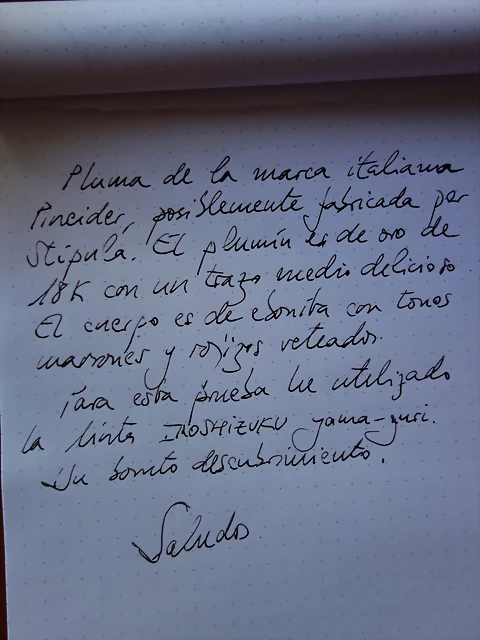 Pluma de la marca italiana
Pineider, posiblemente fabricada por
Stipula. El plumín es de oro de
18K con un trazo medio delicioso.
El cuerpo es de ebonita con tonos
marrones y rojizos veteados.
Para esta prueba he utilizado
la tinta IROSHIZUKU yama-guri.
Un bonito descubrimiento.
Saludos